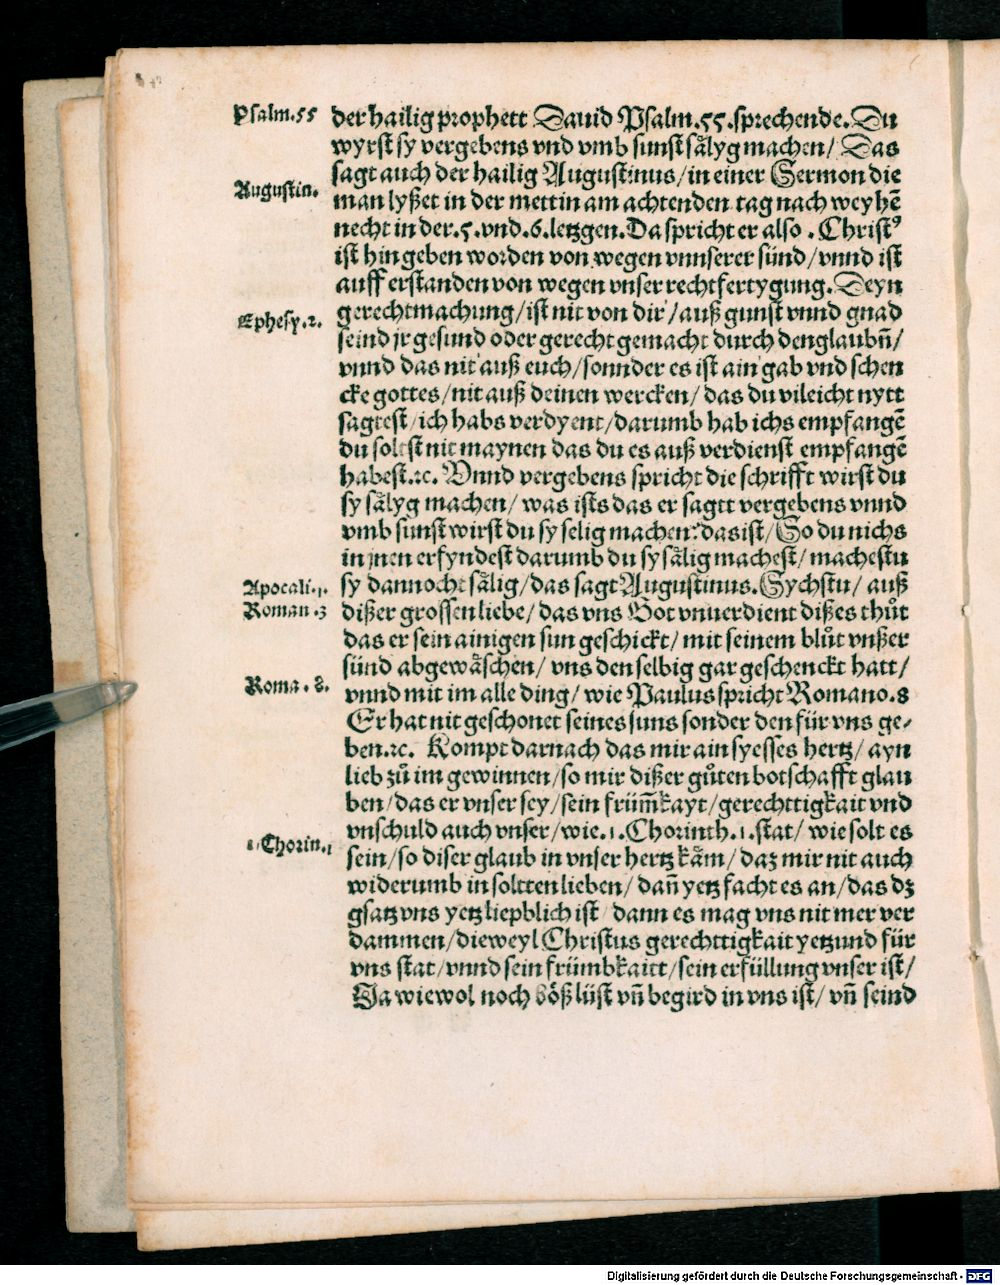 Psalm.55
der hailig prophett Dauid Psalm.55.sprechende. Du
wyrst sy vergebens vnd vmb sunst sålyg machen/ Das
sagt auch der hailig Augustinus/in einer Sermon die
Augustin.
man lyßet in der mettin am achtenden tag nach weyhē
necht in der.5.vnd.6.letzgen. Da spricht er also . Christꝰ
ist hin geben worden von wegen vnnserer sünd/vnnd ist
auff erstanden von wegen vnser rechtfertygung. Deyn
Ephesy.2.
gerechtmachung/ist nit von dir/auß gunst vnnd gnad
seind jr gesund oder gerecht gemacht durch den glaubn̄/
vnnd das nit auß euch/sonnder es ist ain gab vnd schen
cke gottes/nit auß deinen wercken/das du vileicht nytt
sagtest/ich habs verdyent/darumb hab ichs empfangē
du soltst nit maynen das du es auß verdienst empfangē
habest.ꝛc. Vnnd vergebens spricht die schrifft wirst du
sy sålyg machen/ was ists das er sagtt vergebens vnnd
vmb sunst wirst du sy selig machen: das ist/ So du nichs
in jnen erfyndest darumb du sy sålig machest/ machestu
Apocali.1.
sy dannocht sålig/das sagt Augustinus. Sychstu/ auß
Roman.3
dißer grossen liebe/ das vns Got vnuerdient dißes thůt
das er sein ainigen sun geschickt/ mit seinem blůt vnßer
sünd abgewåschen/ vns den selbig gar geschenckt hatt/
Roma.8.
vnnd mit im alle ding/ wie Paulus spricht Romano.8
Er hat nit geschonet seines suns sonder den für vns ge-
ben.ꝛc. Kompt darnach das mir ain syesses hertz/ ayn
lieb zů im gewinnen/so mir dißer gůten botschafft glau
ben/das er vnser sey/sein früm̄kayt/gerechttigkait vnd
vnschuld auch vnser/wie.1.Chorinth.1.stat/ wie solt es
1.Chorin.1
sein/so diser glaub in vnser hertz kåm/ daz mir nit auch
widerumb in soltten lieben/ dan̄ yetz facht es an/das dz
gsatz vns yetz liepblich ist/ dann es mag vns nit mer ver
dammen/dieweyl Christus gerechttigkait yetzund für
vns stat/vnnd sein frümbkaitt/sein erfüllung vnser ist/
Ja wiewol noch böß lüst vn̄ begird in vns ist/ vn̄ seind
Digitalisierung gefördert durch die Deutsche Forschungsgemeinschaft - DFG